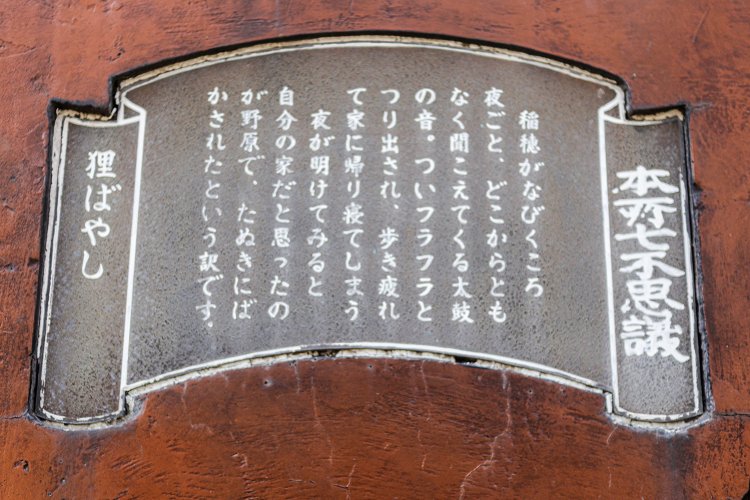 本所七不思議
稲穂がなびくころ
夜ごと、どこからとも
なく聞こえてくる太鼓
の音。ついフラフラと
つり出され、歩き疲れ
て家に帰り寝てしまう
夜が明けてみると
自分の家だと思ったの
が野原で、たぬきにば
かされたという訳です.
狸ばやし